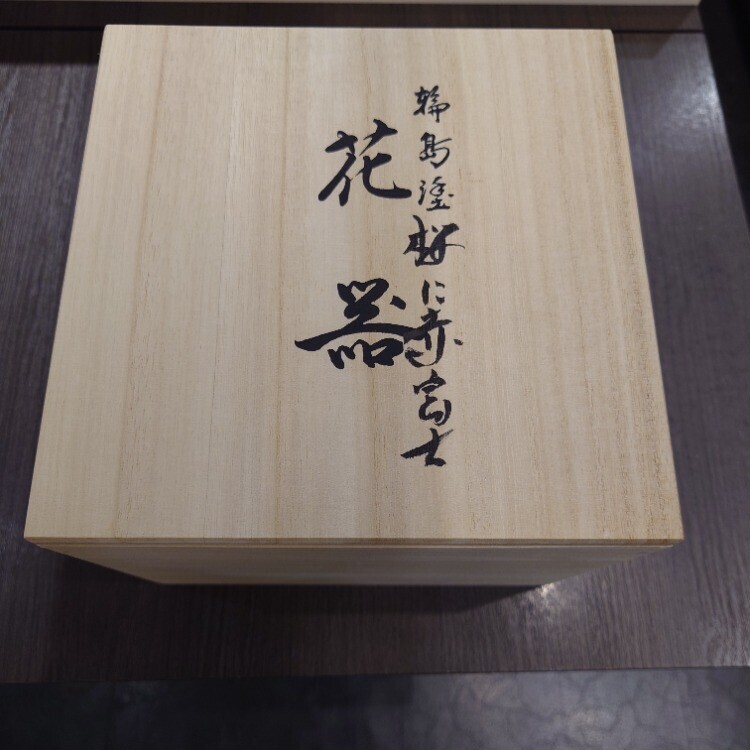 輪島塗桜に赤富士
花器